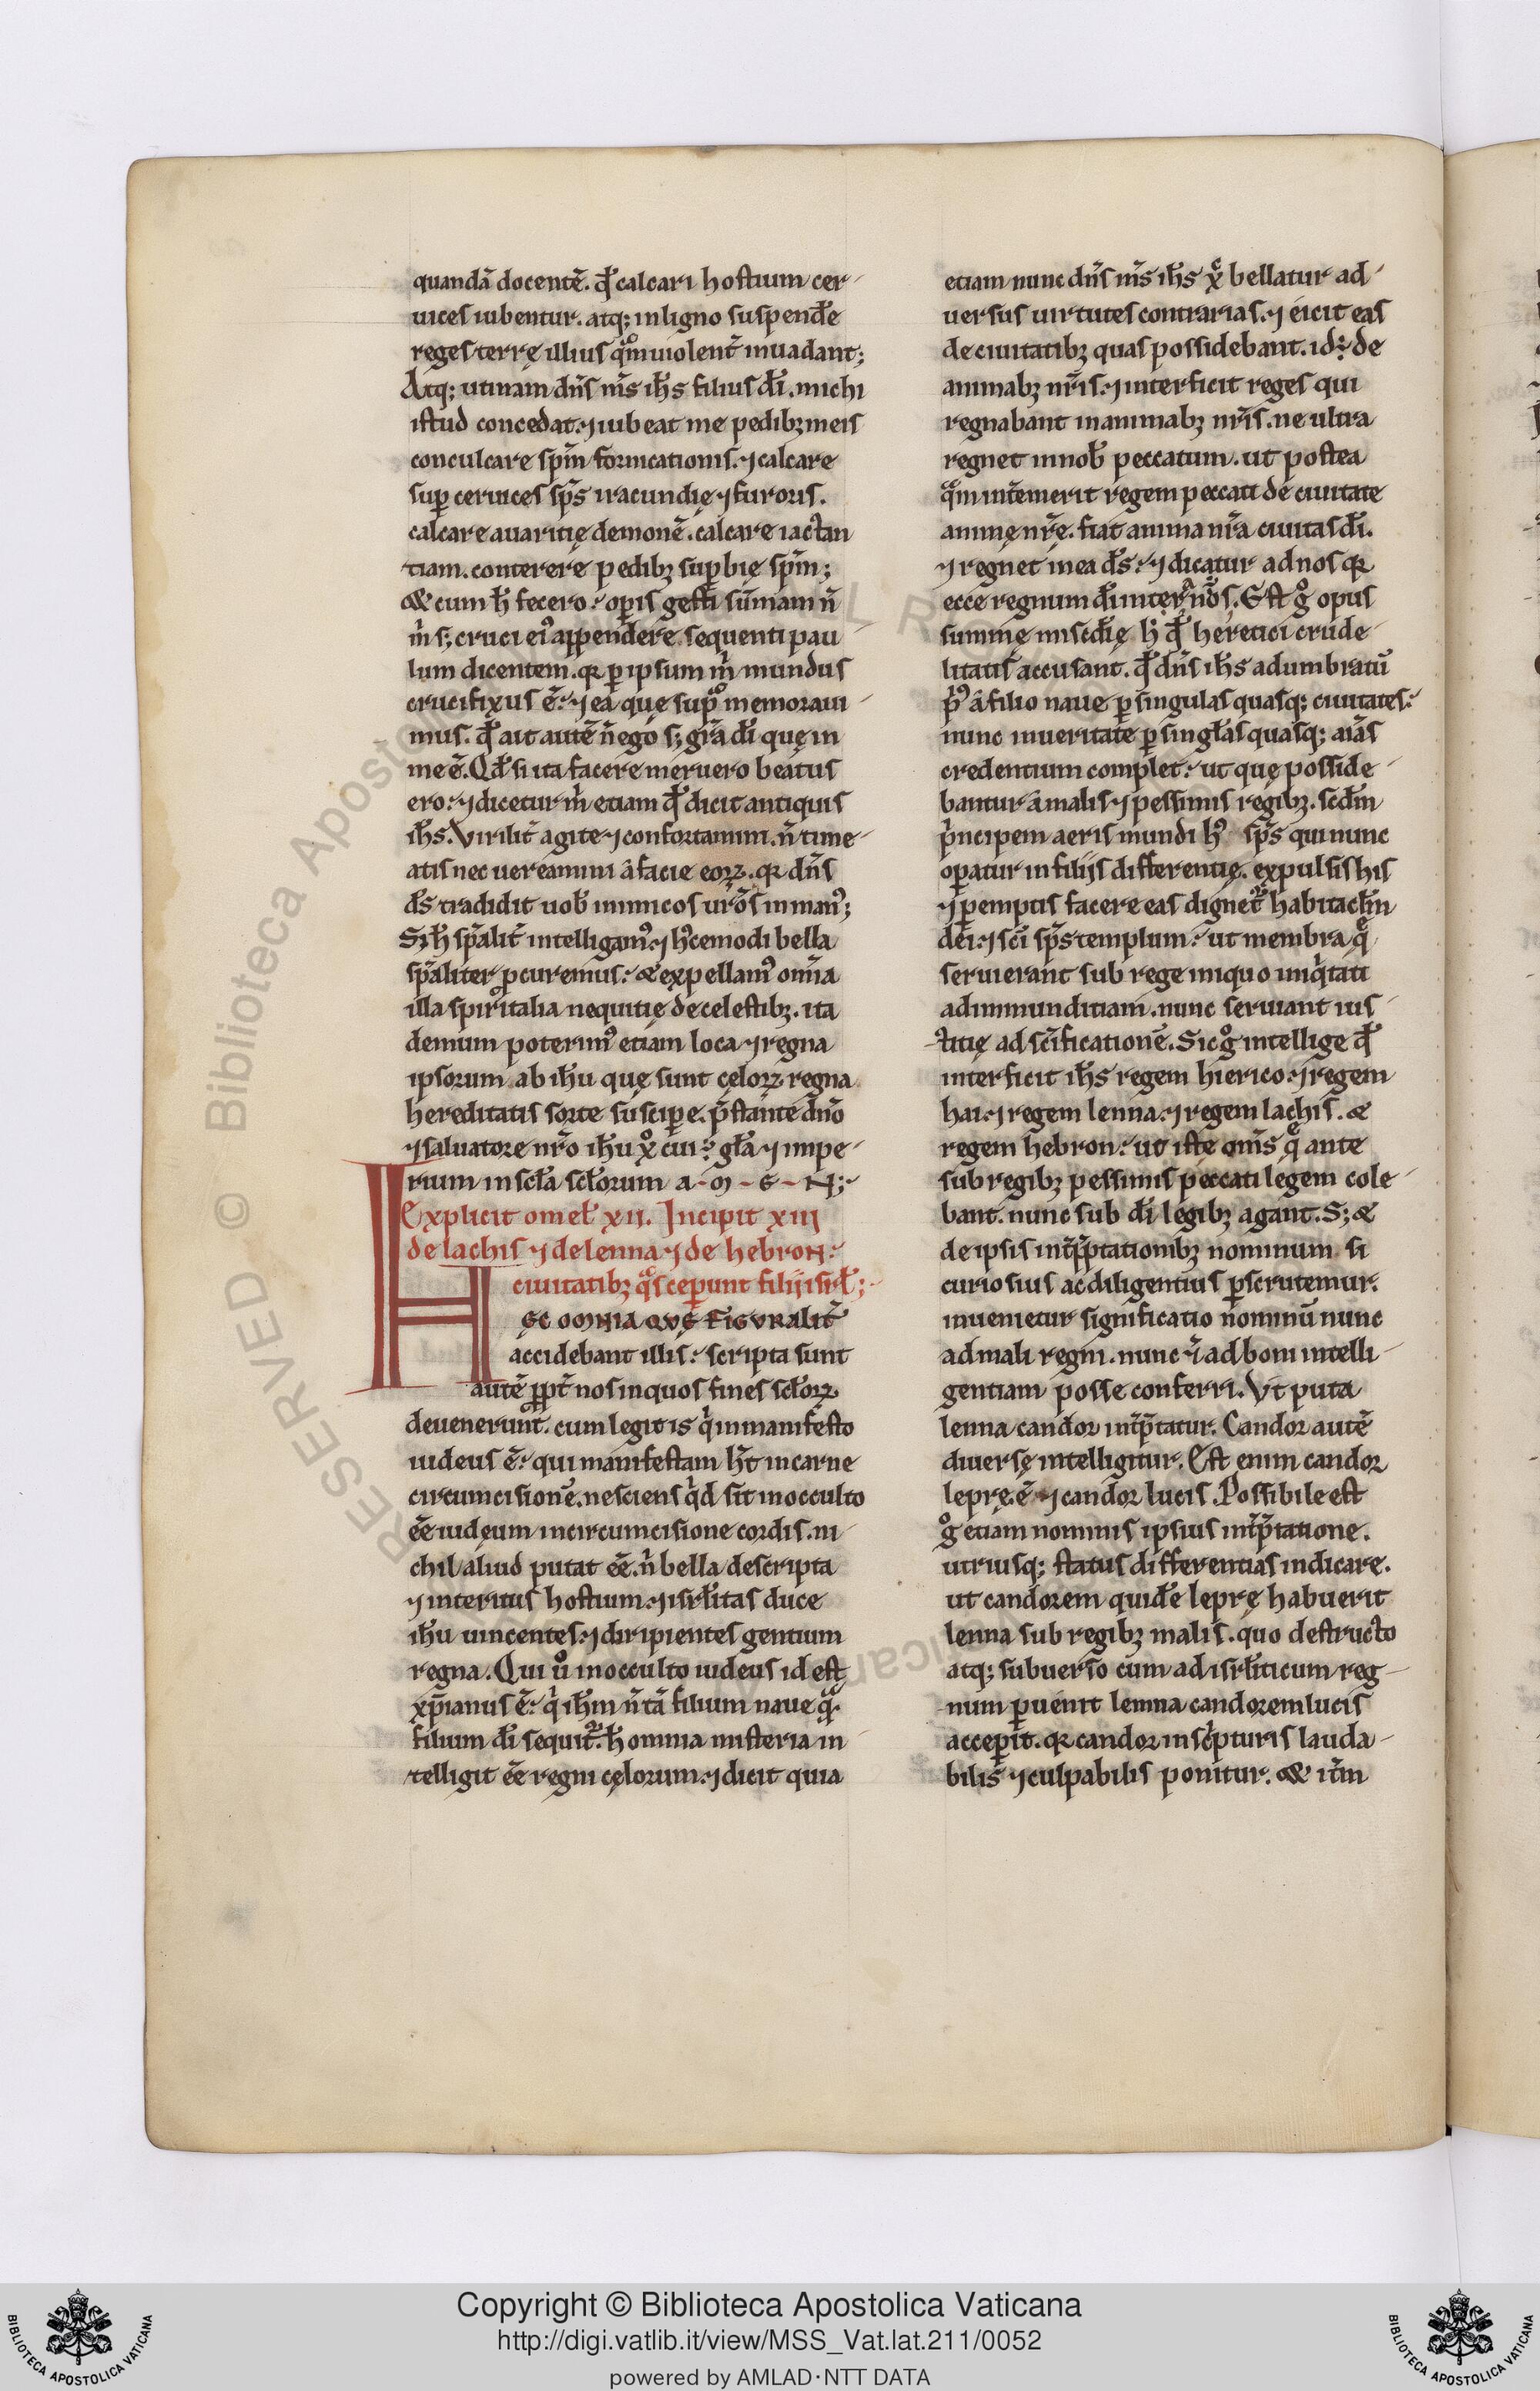 quandā docentē. qđ calcari hostium cer-
uices iubentur. atq; in ligno suspendẽ
reges terrę illius quõm uiolent̃ inuadant;
Atq; utinam dñs m̃s ih̃s filius dĩ. michi
istud concedat. ⁊ iubeat me pedibꝫ meis
conculcare sp̃m fornicationis. ⁊ calcare
suꝑ ceruices sp̃s iracundię ⁊ furoris.
calcare auaritię demonē. calcare iactan
tiam. conterere pedibꝫ suꝑbię sp̃m;
& cum h̃ fecero. oꝑis gesti sūmam ñ
m̃ s; cruci ei' appendere. sequenti pau
lum dicentem. qꝛ ꝑ ipsum m̃ mundus
crucifixus ē. ⁊ ea quę sup̃ memoraui-
mus. qđ ait autē ñ ego s; gr̃a dĩ quę in
me ē. Qđ si ita facere meruero beatus
ero. ⁊ dicetur m̃ etiam qđ dicit antiquis
ih̃s. Virilit̃ agite ⁊ confortamini. ñ time-
atis nec uereamini á facie eoꝝ. qꝛ dñs
d̃s tradidit uob̃ inimicos ur̃os in man';
Si h̃ sp̃alit̃ intelligam'. ⁊ h'cemodi bella
sp̃aliter ꝓcuremus. & expellam' om̃ia
illa spiritalia nequitię de celestibꝫ. ita
demum poterim' etiam loca ⁊ regna
ipsorum ab ih̃u quę sunt cęloꝝ regna
hereditatis sorte suscipe. p̃stante dño
⁊ saluatore nr̃o ih̃u xp̊ cui ÷ gl̃a ⁊ impe-
rium in scl̃a scl̃orum a-m-e-N;
Explicit omel̃ xii. Incipit xiij
de lachis ⁊ de lenna ⁊ de hebroN.
ciuitatibꝫ q̊s ceꝑunt filij isrl̃;
Hęc omNia quę figuralit̃
accidebant illis. scripta sunt
autē ꝓpt̃ nos in quos fines scl̃oꝝ
deuenerunt. cum legit is q' in manifesto
iudeus ē. qui manifestam h̃t in carne
circumcisionē. nesciens q'd sit in occulto
eē iudęum in circumcisione cordis. ni-
chil aliud putat eē. n' bella descripta
⁊ interitus hostium. ⁊ isrl̃itas duce
ih̃u uincentes. ⁊ diripientes gentium
regna. Qui ũ in occulto iudeus id est
xp̃ianus ē. q' ih̃m ñ tā filium naue q̃
filium dĩ sequit̃. h̃ omnia misteria in-
telligit eē regni cęlorum. ⁊ dicit quia
etiam nunc dñs m̃s ih̃s xp̃ bellatur ad-
uersus uirtutes contrarias. ⁊ eicit eas
de ciuitatibꝫ quas possidebant. id÷ de
animabꝫ nr̃is. ⁊ interficit reges qui
regnabant in animabꝫ nr̃is. ne ultra
regnet in nob̃ peccatum. ut postea
quõm int̃emerit regem peccati de ciuitate
animę nr̃ę. fiat anima nr̃a ciuitas dĩ.
⁊ regnet in ea d̃s. ⁊ dicatur ad nos qꝛ
ecce regnum dĩ inter uos. Est g̊ opus
summę mis̃c̃dię h̃ qđ heretici crude-
litatis accusant. qđ dñs ih̃s adumbratū
p'' á filio naue ꝑ singulas quasq; ciuitates.
nunc in ueritate ꝑ singl̃as quasq; aĩas
credentium complet. ut quę posside-
bantur á malis ⁊ pessimis regibꝫ. scđm
p'ncipem aeris mundi h' sp̃s qui nunc
oꝑatur in filijs differentię. expulsis his
⁊ ꝑemptis facere eas dignet̃ habitacl̃m
dei. ⁊ scĩ sp̃s templum. ut membra q̃
seruierant sub rege iniquo iniq'tati
ad immunditiam. nunc seruiant ius-
titię ad scĩficationē. Sic g̊ intellige qđ
interficit ih̃s regem hierico. ⁊ regem
hai. ⁊ regem lenna. ⁊ regem lachis. &
regem hebron. ut iste om̃s q̃ ante
sub regibꝫ pessimis peccati legem cole-
bant. nunc sub dĩ legibꝫ agant. S; &
de ipsis int̃p̃tationibꝫ nominum si
curiosius ac diligentius ꝑscrutemur.
inuenietur significatio nominū nunc
ad mali regni. nunc ũ ad boni intelli-
gentiam posse conferri. Vt puta
lenna candor int̃p̃tatur. Candor autē
diuersę intelligitur. Est enim candor
leprę. ē ⁊ candor lucis. Possibile est
g̊ etiam nominis ipsius int̃p̃tatione.
utriusq; status differentias indicare.
ut candorem quidẽ leprę habuerit
lenna sub regibꝫ malis. quo destructo
atq; subuerso cum ad isrl̃iticum reg-
num ꝑuenit lemna candorem lucis
acceꝑit. qꝛ candor in sc'pturis lauda-
bilis ⁊ culpabilis ponitur. & it̃m
Copyright © Biblioteca Apostolica Vaticana
http://digi.vatlib.it/view/MSS_Vat.lat.211/0052
powered by AMLAD·NTT DATA
BIBLIOTECA APOSTOLICA VATICANA
BIBLIOTECA APOSTOLICA VATICANA